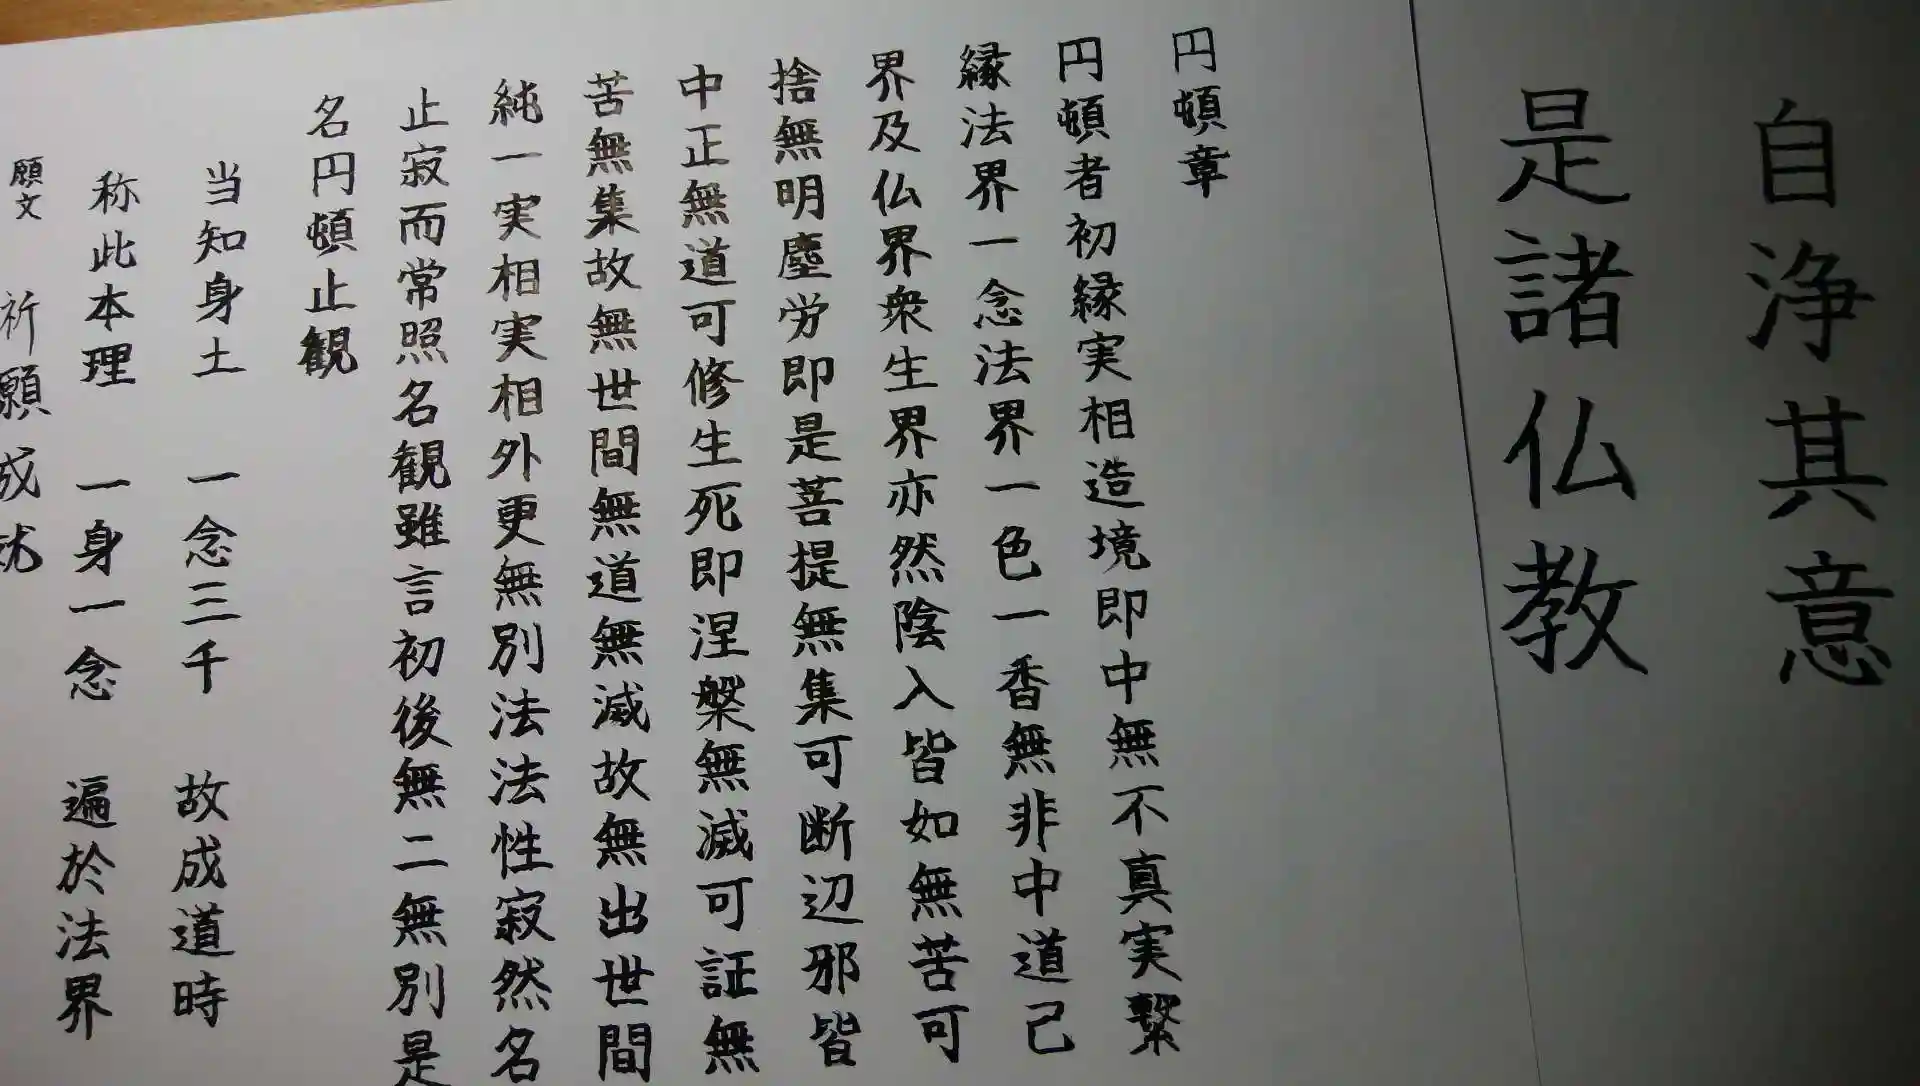 自浄其意
是諸仏教
円頓章
円頓者初縁実相造境即中無不真実繫
縁法界一念法界一色一香無非中道己
界及仏界衆生界亦然陰入皆如無苦可
捨無明塵労即是菩提無集可断辺邪皆
中正無道可修生死即涅槃無滅可証無
苦無集故無世間無道無滅故無出世間
純一実相実相外更無別法法性寂然名
止寂而常照名観雖言初後無二無別是
名円頓止観
当知身土 一念三千 故成道時
称此本理 一身一念 遍於法界
願文 祈願成就